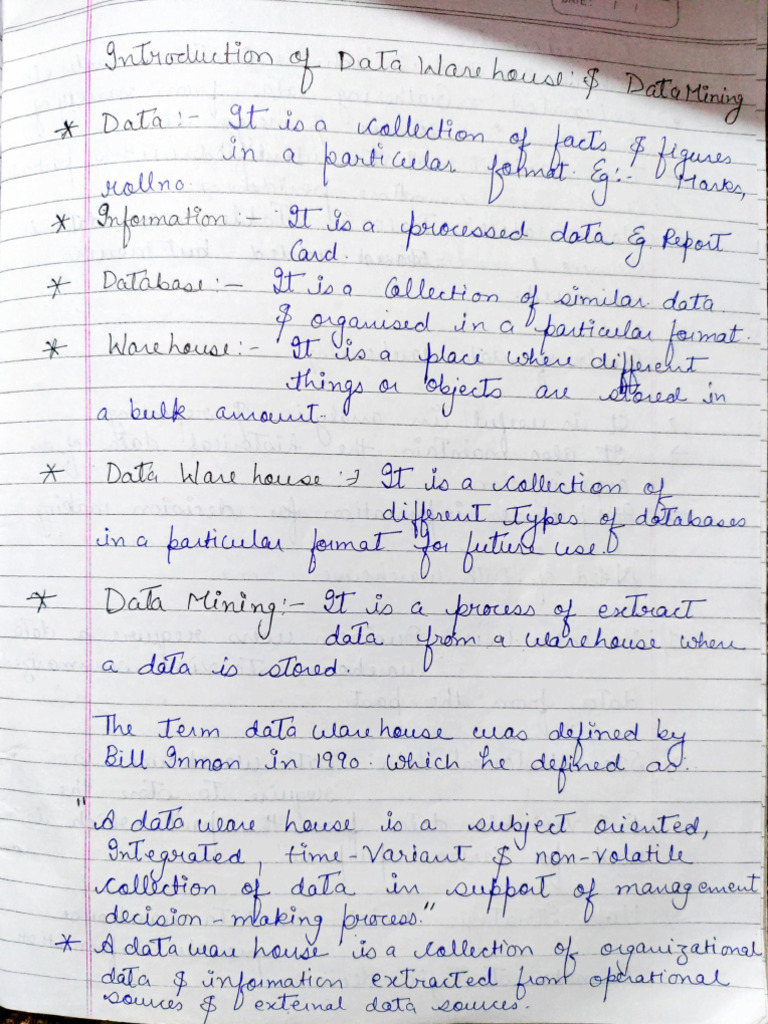 Introduction of Data Warehouse: & Data Mining
* Data:- It is a collection of facts & figures
in a particular format. Eg:- Marks,
rollno
* Information:- It is a processed data Eg Report
Card.
* Database:- It is a Collection of similar data
& organised in a particular format.
* Warehouse:- It is a place where different
things or objects are stored in
a bulk amount.
* Data Ware house :→ It is a collection of
different Types of databases
in a particular format for future use.
* Data Mining:- It is a process of extract
data from a warehouse where
a data is stored.
The Term data warehouse was defined by
Bill Inmon in 1990. which he defined as.
"A data ware house is a subject oriented,
Integrated, time-Variant & non-volatile
collection of data in support of management
decision-making process."
* A data ware house is a collection of organizational
data & information extracted from operational
sources & external data sources.